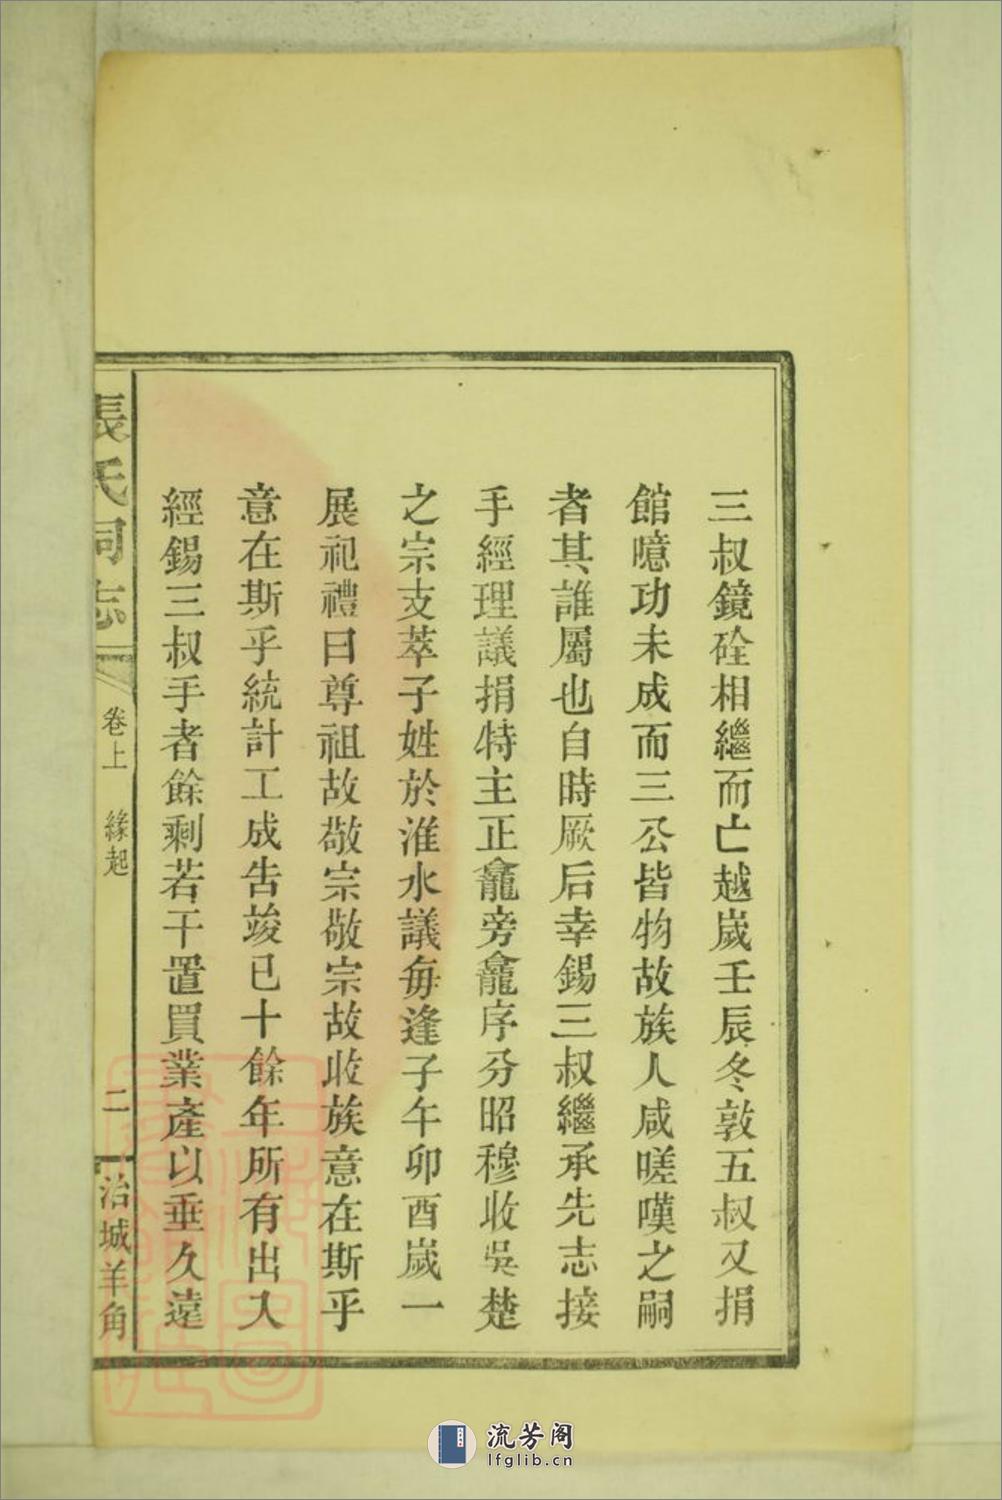 三叔鏡硂相繼而亡越嵗壬辰冬敦五叔又捐
館噫功未成而三公皆物故族人咸嗟嘆之嗣
者其誰屬也自時厥后幸錫三叔繼承先志接
手經理議捐特主正龕旁龕序分昭穆收吳楚
之宗支萃子姓於淮水議每逢子午卯酉嵗一
展祀禮曰尊祖故敬宗敬宗故收族意在斯乎
意在斯乎統計工成告竣已十餘年所有出入
經錫三叔手者餘剩若干置買業產以垂久遠
張氏祠志 卷上 緣起 二 治城羊角
流芳阁
lfglib.cn